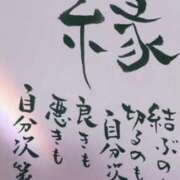 縁
結ぶの
切るのも
自分次
良きも
悪きも
自分次第